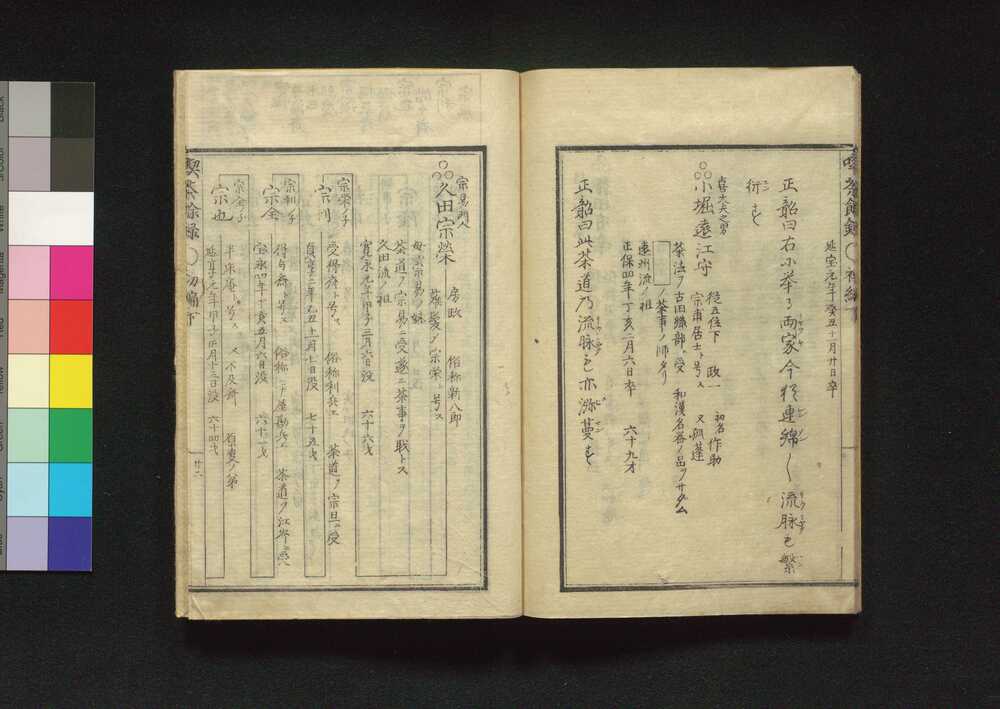 延宝元年癸丑十月廿日卒
正韶曰右ニ挙ル両家今猶連綿シ流脉モ繁
衍ス
喜太夫之男
小堀遠江守
従五位下 政一 初名 作助
宗甫居士ト号ス 又孤蓬
茶法ヲ古田織部ニ受 和漢名器ノ品ヲサダム
ノ茶事ノ師タリ
遠州流ノ祖
正保四年丁亥二月六日卒 六十九才
正韶曰此茶道乃流脉モ亦滋蔓ス
宗易門人
久田宗榮
房政 俗称新八郎
薙髪シ宗榮ト号ス
母ハ宗易ノ妹
茶道ヲ宗易ニ受遂ニ茶事ヲ職トス
久田流ノ祖
寛永元年甲子三月六日没 六十六才
宗榮ノ子
宗利
受得斎ト号ス 俗称利兵エ 茶道ヲ宗旦ニ受
貞享二年乙丑十一月七日没 七十五才
宗利ノ子
宗全
得誉斎ト号ス 俗称ヒナ屋勘兵エ 茶道ヲ江岑ニ受
宝永四年丁亥五月六日没 六十一才
宗全ノ子
宗也
半床庵ト号ス 又不及斎 原叟ノ弟
延享元年甲子正月十三日没 六十四才
喫茶餘録 初編下
廿二